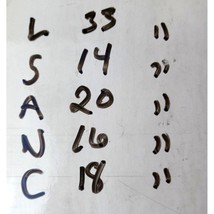 L 33 "
S 14 "
A 20 "
N 16 "
C 18 "